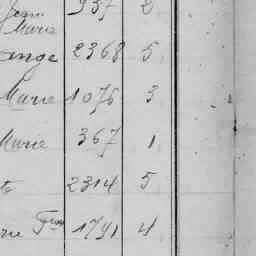 Jean 937 2
Marie
ange 2368 5
Marie 1076 3
Marie 367 1
te 2314 5
rie Fran 1791 4